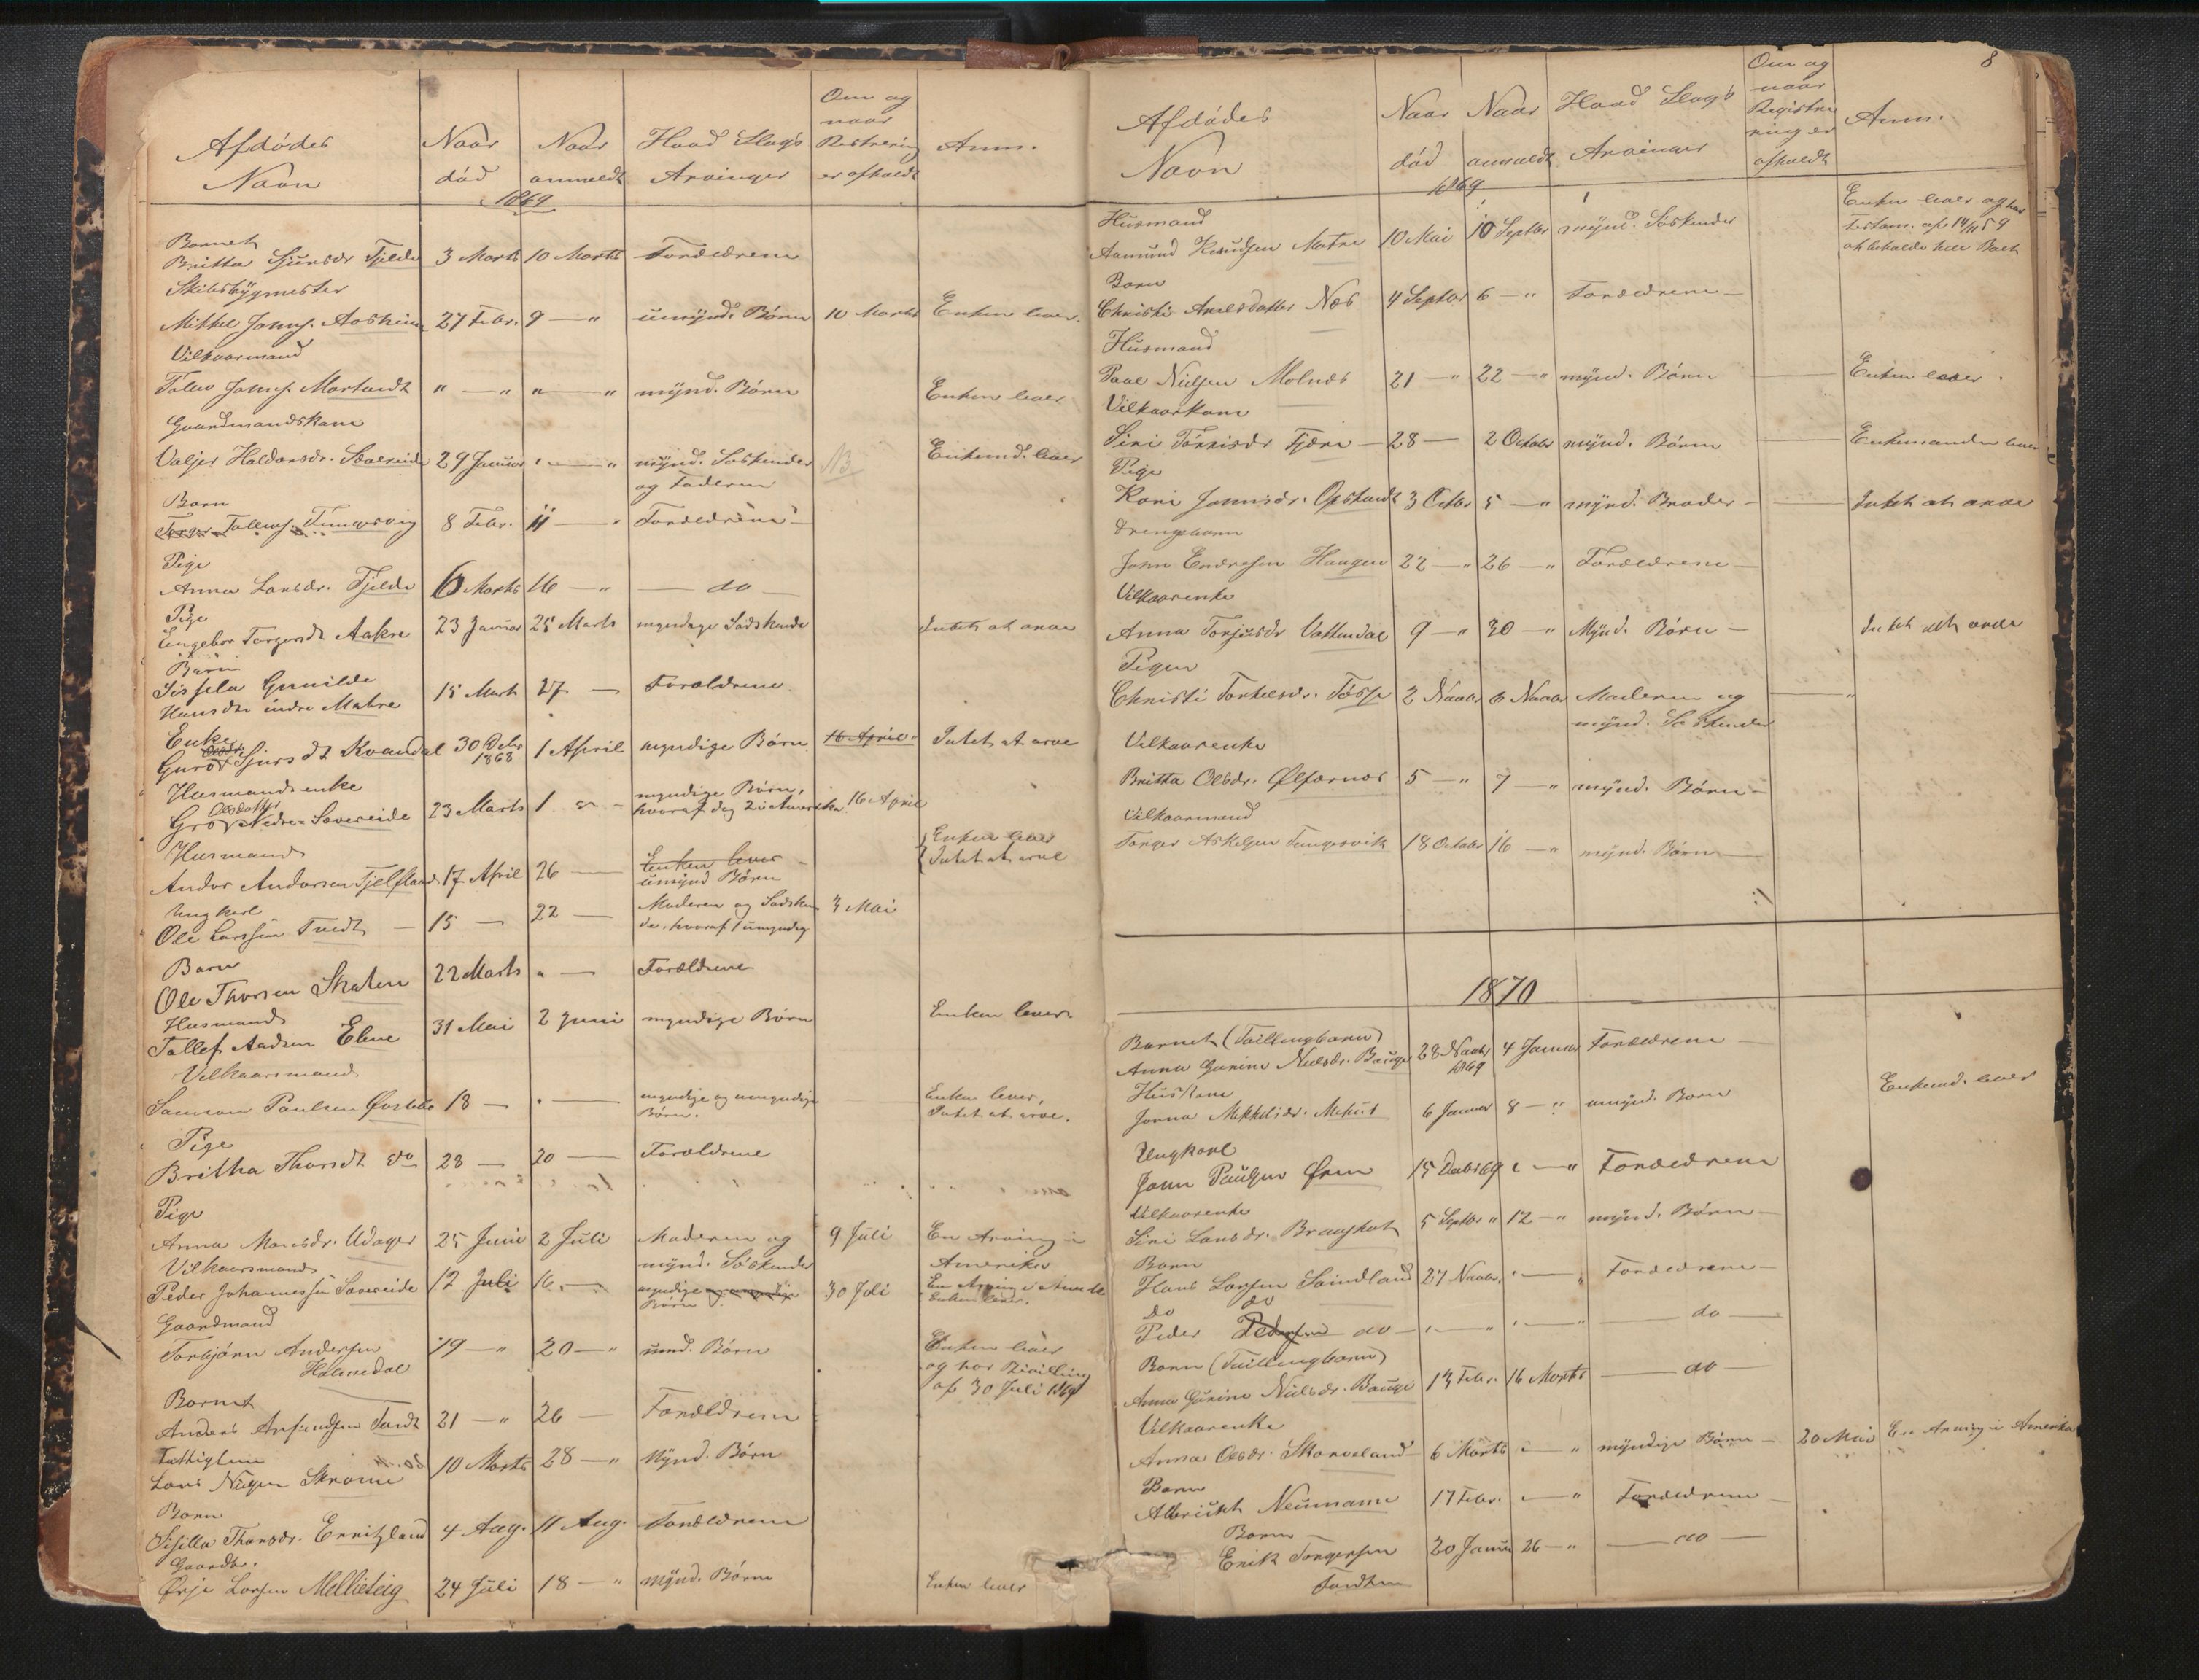 Afdødes
Navn
Naar
død
Naar
anmeldt
Hvad Slags
Arvinger
Om og
naar
Restrering
er afholdt
Anm.
1869
Barnet
Britta Sjursdr Tjelde 3 Marts 10 Marts Forældrene
Skibsbygmester
Mikkel Johnss. 27 Febr. 9 — " umynd. Børn 10 Marts Enken lever.
Vilkaarmand
Johns. " — " " — " mynd. Børn Enken lever
Gaardmandskone
Valjer Haldorsdr. 29 Januar " — " mynd. Søskende NB Enkemd. lever
og Faderen
Barn
Tollews. Tungesvig 8 Febr. 11 — " Forældrene —
Pige
Anna Larsdr. Tjelde 6 Marts 16 — " — do —
Pige
Engebor Torgersdt Aakre 23 Januar 25 Marts myndige Sødskende Intet at arve
Barn
Sissela Gunilde
Hansdtr indre Matre 15 Marts 27 — Forældrene
Enke
Guro Sjursdt Kvandal 30 Debr 1 April myndige Børn 16 April Intet at arve
1868
Husmandsenke
Olsdatter
Gro Nedre Sævereide 23 Marts 1 — myndige Børn,
hvoraf dog 2 i Amerika 16 April
Husmand
Andor Andersen Tjelfland 17 April 26 — Enken lever
umynd Børn
Enken lever
Intet at arve
Ungkarl
Ole Larssen Tvedt — 15 — 22 — Moderen og Sødsken-
de, hvoraf 1 umyndig 3 Mai
Barn
Ole Thorsen Skaten 22 Marts " — Forældrene
Husmand
Tollef Aadsen Ebne 31 Mai 2 Juni myndige Børn Enken lever
Vilkaarsmand
Samson Paulsen Østebø 18 — " — myndige og umyndige
Børn.
Enken lever,
Intet at arve.
Pige
Britha Thorsdt do 28 — 20 — Forældrene
Pige
Anna Monsdr. Udager 25 Juni 2 Juli Moderen og
mynd. Søskender 9 Juli En Arving i
Amerika
Vilkaarsmand
Peder Johannessen Sævereide 12 Juli 16 — myndige og umyndige
Børn 30 Juli En Arving i
Enken lever.
Gaardmand
Torbjørn Andersen
Holmedal 19 — " 20 — " umd. Børn Enken lever
og har Bevilling
af 30 Juli 1869
Barnet
Anders Anfindsen Tvedt 21 — " 26 — Forældrene
Fattiglem
Lars Nilsen Skrome 10 Marts 28 — " Mynd. Børn
Barn
Sisilla Thorsdr. Erritzland 4 Aug. 11 Aug. Forældrene
Gaardbr.
Ørje Larsen Mellieteig 24 Juli 18 — " mynd. Børn Enken lever
8
Afdødes
Navn
Naar
død
Naar
anmeldt
Hvad Slags
Arvinger
Om og
naar
Registre
ring er
afholdt
Anm.
1869
Husmand
Aamund Knudsen Matre 10 Mai 10 Septbr mynd. Søskender
Enken lever og har
Testam. af 14/11 59
Barn
Christi Axelsdatter Næs 4 Septbr 6 — " Forældrene —
Husmand
Paal Nielsen Molnes 21 — " 22 — " mynd. Børn — Enken lever.
Vilkaarkone
Siri Tørrisdr Fjære — 28 — 2 Octobr mynd. Børn — Enkemanden lever
Pige
Kari Jonnisdr. Opstveit 3 Octbr 5 — " mynd. Broder — Intet at arve
Drengebarn
John Endresen Haugen 22 — " 26 — " Forældrene —
Vilkaarenke
Anna Torjusdr Vattendal 9 — " 30 — " Mynd. Børn — Intet at arve
Pigen
Christi Torkelsdr. Tøsse 2 Novbr 6 Novbr Moderen og
mynd. Søskender — "
Vilkaarenke
Britta Olsdr. Ølfernæs 5 — " 7 — " mynd. Børn —
Vilkaarmand
Torger Askelsen Tungesvik 18 Octobr 16 — " mynd. Børn —
1870
Barnet (Tvillingbarn)
Anna Gurine Nielsdr. Bauge 28 Novbr 4 Januar Forældrene —
1869
Huskone
Jorna Mikkelsdr. Mehus 6 Januar 8 — " umynd. Born Enkemd. lever
Ungkarl
John Paulsen Øren 15 Debr 69 " — " Forældrene
Vilkaarenke
Siri Larsdr. 5 Septbr " 12 — " mynd. Børn —
Barn
Hans Larsen Sandland 27 Novbr. " — " Forældrene —
do do
Peder Pedersen do — " — " " — " — do —
Barn (Tvillingbarn)
Anna Gurine Nielsdr. Bauge 13 Febr. 16 Marts — do —
Vilkaarenke
Anna Olsdr. Skorveland 6 Marts " — " myndige Børn — 20 Mai En Arving i Amerika
Barn
Albricht Neumann 17 Febr. " — " Forældrene —
Barn
Erik Torgersen 20 Januar 26 — " — do —